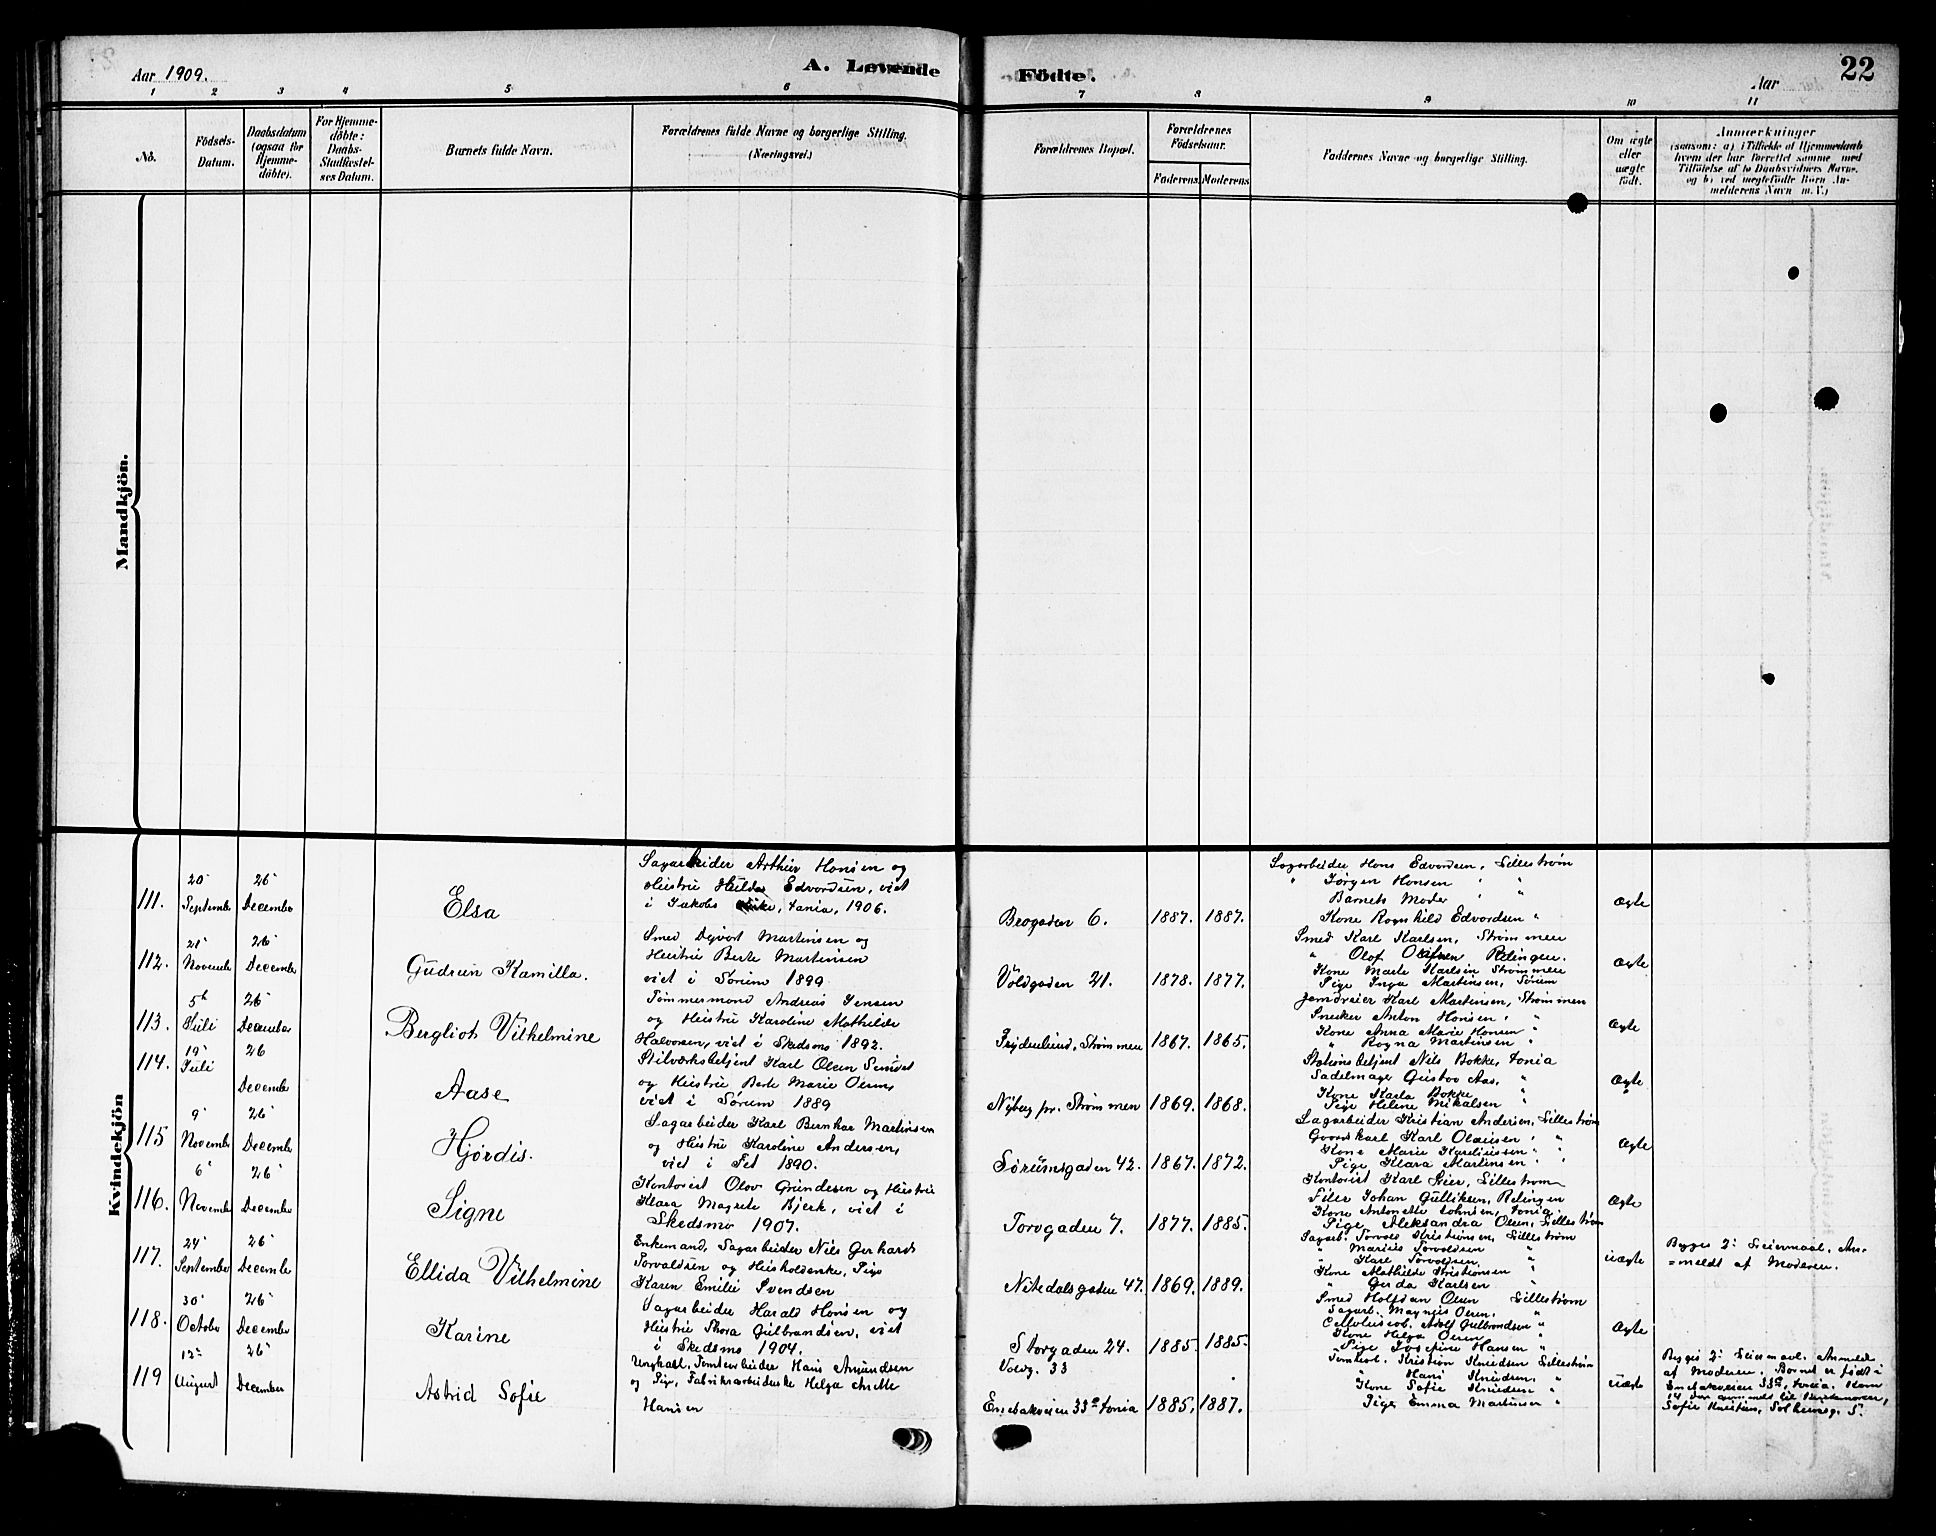 Aar 1909.
A. Levende
Födte.
Aar
22
1 2 3 4 5 6 7 8 9 10 11
No.
Födsels-
Datum.
Daabsdatum
(ogsaa for
Hjemme-
döbte).
For Hjemme-
döbte:
Daabs-
Stadfæstel-
ses Datum.
Barnets fulde Navn.
Forældrenes fulde Navne og borgerlige Stilling.
(Næringsvei.)
Forældrenes Bopæl.
Forældrenes
Födselsaar.
Faderens
Moderens
Faddernes Navne og borgerlige Stilling.
Om ægte
eller
uægte
födt.
Anmærkninger
(saasom: a) i Tilfælde af Hjemmedaab
hvem der har forrettet samme, med
Tilföielse af to Daabsvidners Navne,
og b) ved uægtefödte Börn An-
melderens Navn m. V.)
Mandkjön.
Kvindekjön
111.
20
September
26
December
Elsa
Sagarbeider Arthur Hansen og
Hustru Hulda Edvardsen, viet
i Jakobs Kirke, Kania, 1906.
Brogaden 6.
1887.
1887.
Sagarbeider Hans Edvardsen, Lillestrøm
" Jørgen Hansen " "
Barnets Moder " "
Kone Ragnhild Edvardsen "
ægte
112.
21
November
26
December
Gudrun Kamilla.
Smed Dyvart Martinsen og
Hustru Berte Martinsen
viet i Sørum 1899
Voldgaden 21.
1878.
1877.
Smed Karl Karlsen, Strømmen
" Olof Olafsen Rælingen.
Kone Marte Karlsen Strømmen
Pige Inga Martinsen, Sørum
ægte
113.
5te
Juli
26
December
Bergliot Vilhelmine
Tømmermand Andreas Jensen
og Hustru Karoline Mathilde
Halvorsen, viet i Skedsmo 1892.
Frydenlund, Strømmen
1867.
1865.
Jordeier Karl Martinsen, Strømmen
Snecker Anton Hansen, "
Kone Anna Marie Hansen "
" Ragna Martinsen "
ægte
114.
19
Juli
26
December
Aase
Stilværksbetjent Karl Olsen
og Hustru Berte Marie Olsen,
viet i Sørum 1889
Nyberg pr. Strømmen
1869.
1868.
Stationsbetjent Nils Bakke,
Sadelmager Gustav Aas, "
Kone Karla Bakke "
Pige Helene Mikalsen "
ægte
115
9
November
26
December
Hjørdis.
Sagarbeider Karl Bernhar Martinsen
og Hustru Karoline Andersen,
viet i Fet 1890.
Sørumsgaden 42.
1867.
1872.
Sagarbeider Kristian Andersen, Lillestrøm
Gaardskarl Karl Olausen " "
Kone Marie Kareliussen " "
Pige Klara Martinsen " "
ægte
116.
6
November
26
December
Signe
Kontorist Olov Gundesen og Hustru
Klara Magrete Bjerk, viet i
Skedsmo 1907.
Torvgaden 7.
1877.
1885.
Kontorist Karl Lier, Lillestrøm
Filer Johan Gulliksen, Rælingen
Kone Antonette Johnsen,
Pige Aleksandra Olsen, Lillestrøm
ægte
117.
24
September
26
December
Ellida Vilhelmine
Enkemand, Sagarbeider Nils Gerhard
Torvaldsen og Husholderske, Pige
Karen Emilie Svendsen
Nitedalsgaden 47.
1869.
1889.
Sagarb. Torvald Kristiansen, Lillestrøm
" Marius Torvaldsen "
" Karl Torvaldsen, "
Kone Mathilde Kristiansen "
" Gerda Karlsen "
uægte
Begges 2: Leiermaal. An-
=meldt af Moderen.
118.
30
October
26
December
Karine
Sagarbeider Harald Hansen og
Hustru Thora Gulbrandsen, viet
i Skedsmo 1904.
Storgaden 24.
1885.
1885.
Smed Halfdan Olsen Lillestrøm
Sagarb. Magnus Olsen, "
Adolf Gulbrandsen "
Kone Helga Olsen "
Pige Josefine Hansen "
ægte
119
12
August
26
December
Astrid Sofie
Ungkarl, Tomtearbeider Hans Amundsen
og Pige, Fabrikarbeiderske Helga Anette
Hansen
Voldg. 33
Enebakveien 33
1885.
1887.
Tomtearb. Kristian Knudsen Lillestrøm
" Hans Knudsen, "
Kone Sofie Knudsen "
Pige Emma Martinsen "
uægte
Begges 2: Leiermaal. Anmeldt
af Moderen. Barnet er født i
Enebakveien
Sofie